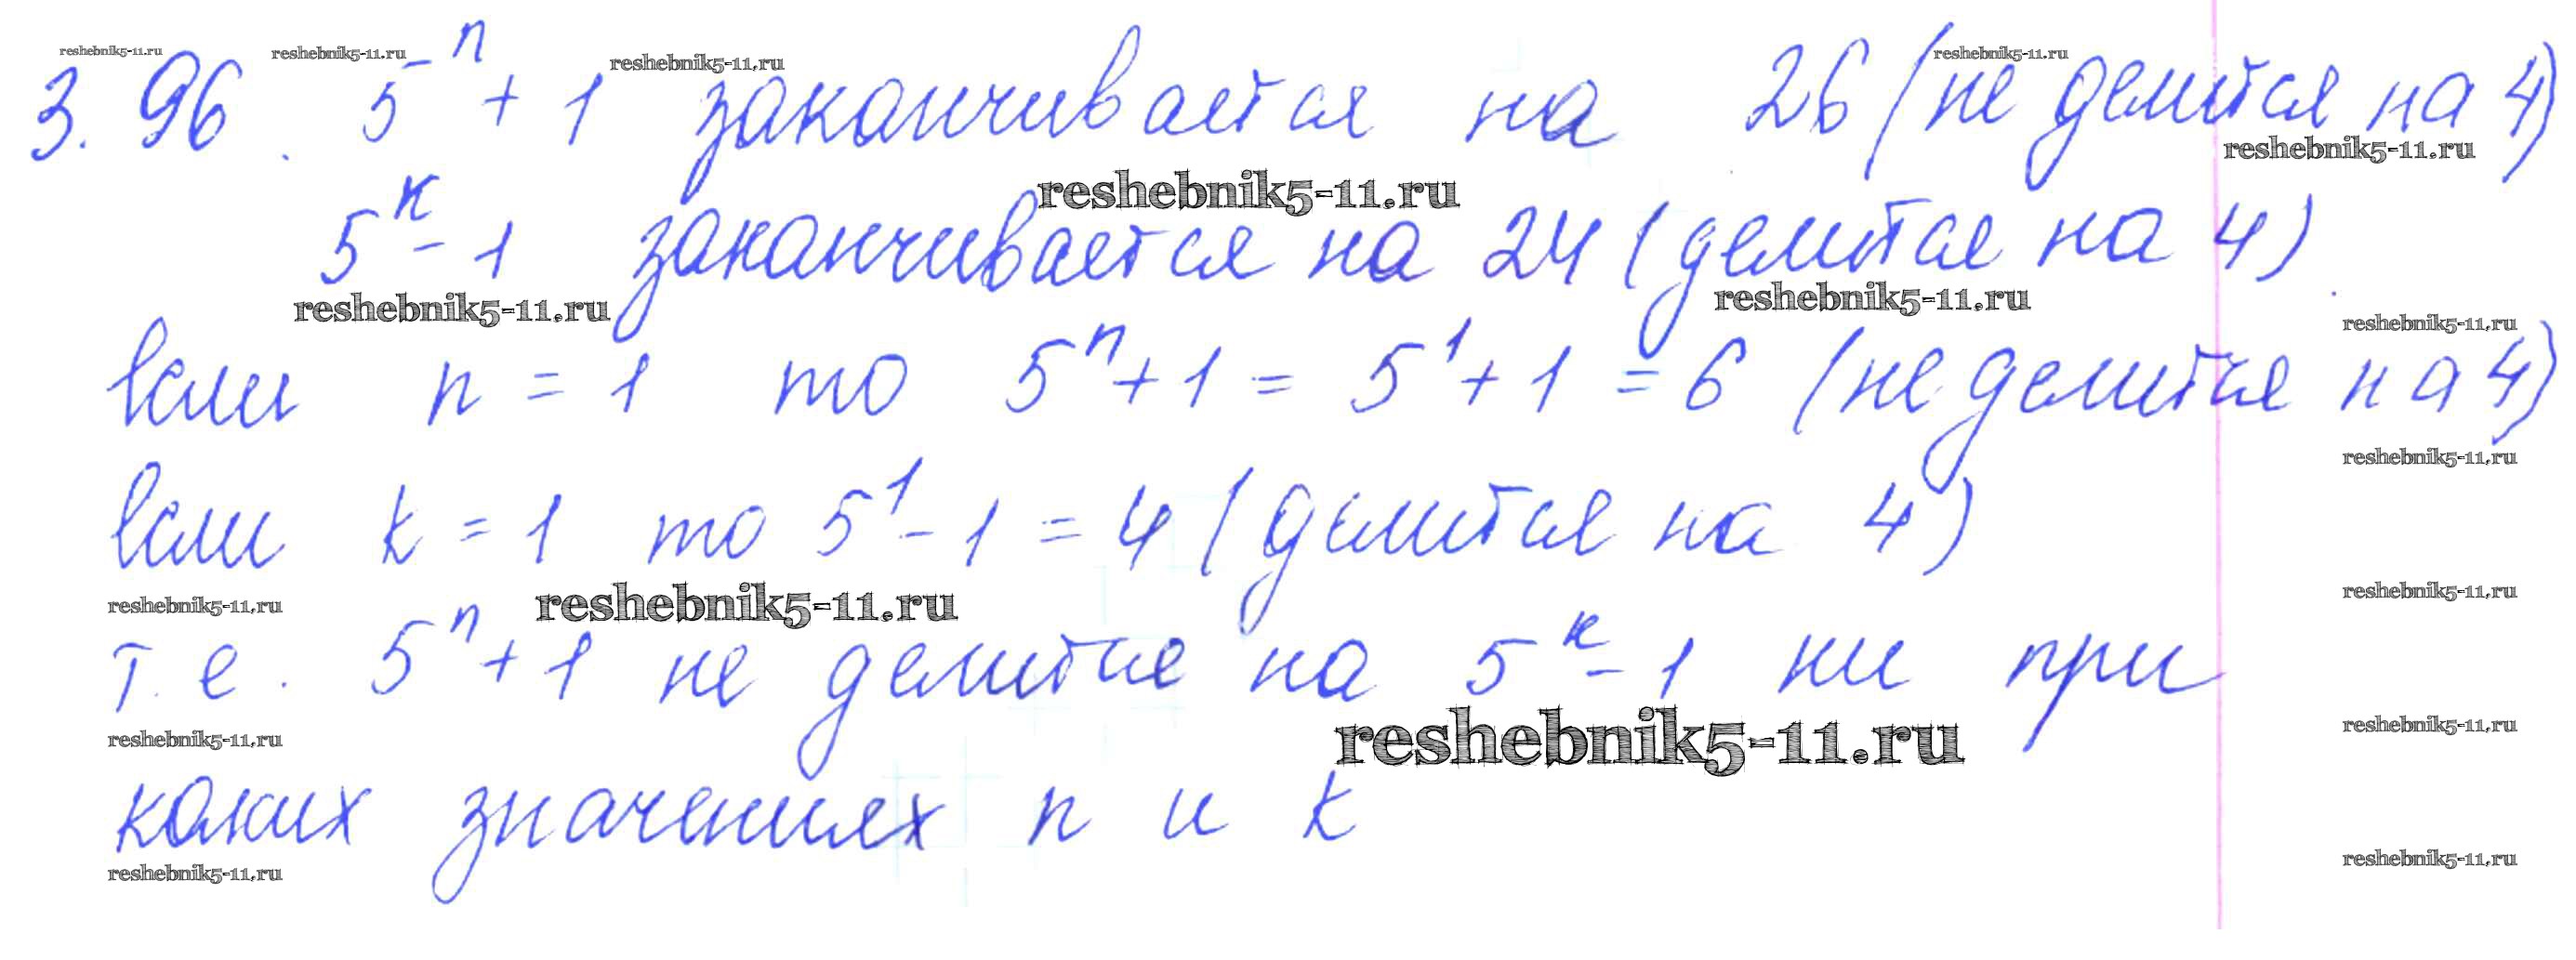 reshebnik5-11.ru reshebnik5-11.ru reshebnik5-11.ru reshebnik5-11.ru
3.96. 5ⁿ + 1 заканчивается на 26 (не делится на 4)
reshebnik5-11.ru
reshebnik5-11.ru
5ᵏ - 1 заканчивается на 24 (делится на 4).
reshebnik5-11.ru reshebnik5-11.ru
reshebnik5-11.ru
Если n = 1 то 5ⁿ + 1 = 5¹ + 1 = 6 (не делится на 4)
reshebnik5-11.ru
Если k = 1 то 5¹ - 1 = 4 (делится на 4)
reshebnik5-11.ru reshebnik5-11.ru reshebnik5-11.ru
т.е. 5ⁿ + 1 не делится на 5ᵏ - 1 ни при
reshebnik5-11.ru reshebnik5-11.ru reshebnik5-11.ru
каких значениях n и k
reshebnik5-11.ru reshebnik5-11.ru